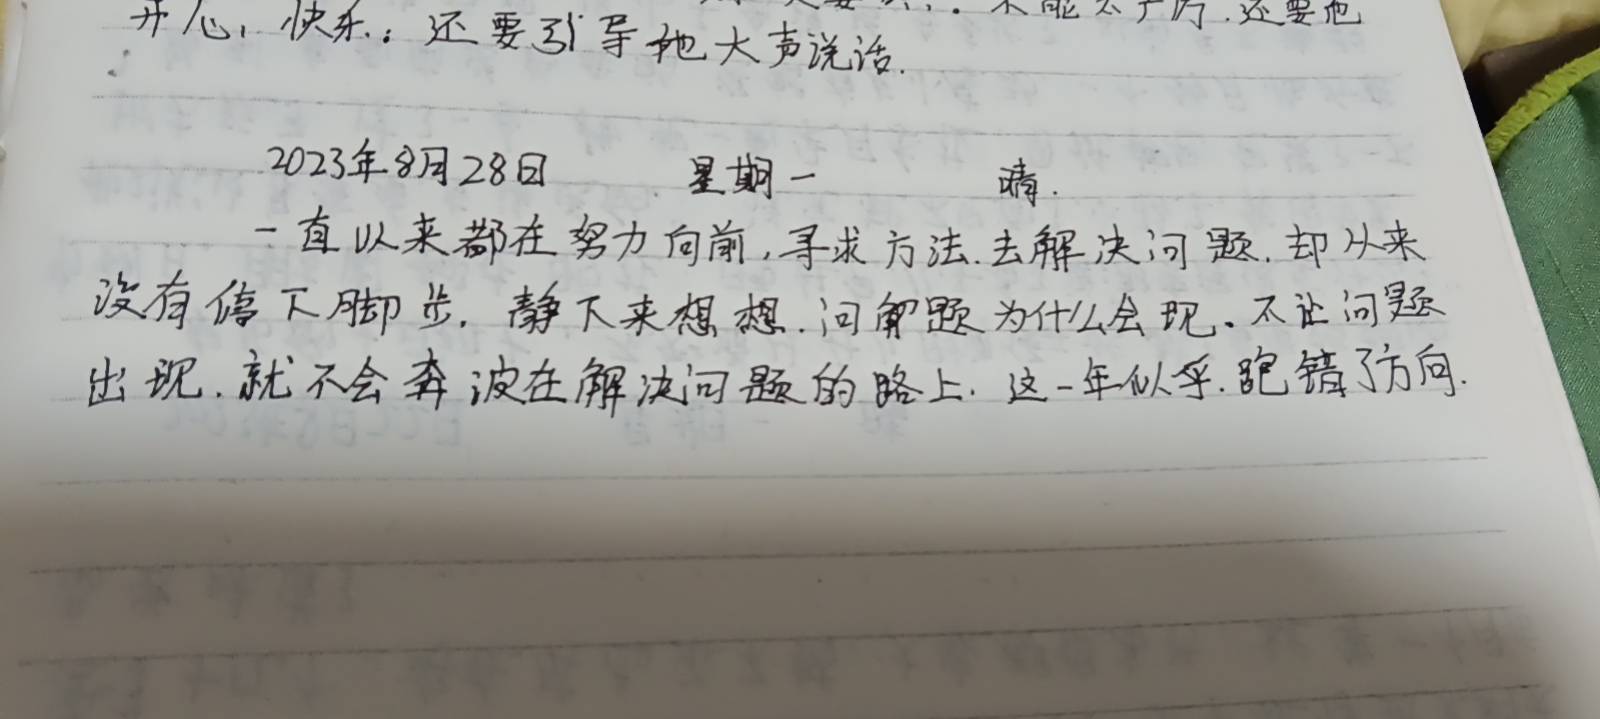 不能太严厉.还要他
开心,快乐;还要引导她大声说话.
2023年8月28日 星期一 晴.
一直以来都在努力向前,寻求方法.去解决问题.却从来
没有停下脚步.静下来想想.问题为什么会现.不让问题
出现.就不会奔波在解决问题的路上.这一年似乎.跑错了方向.